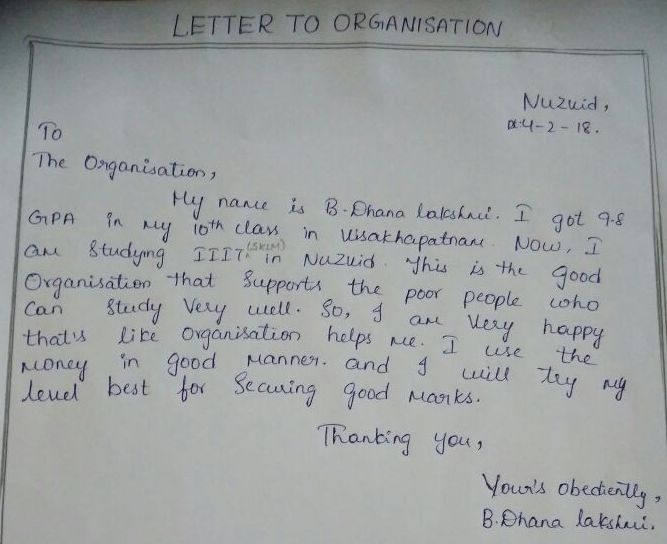 LETTER TO ORGANISATION
Nuzuid,
Dt:4-2-18.
To
The Organisation,
My name is B.Dhana lakshmi. I got 9.8
GPA in my 10th class in Visakhapatnam. Now, I
am Studying IIIT(SKLM) in Nuzuid. This is the good
Organisation that Supports the poor people who
can Study Very well. So, I am Very happy
that's like Organisation helps me. I use the
money in good manner. and I will try my
level best for Securing good marks.
Thanking you,
Your's obediently,
B.Dhana lakshmi.